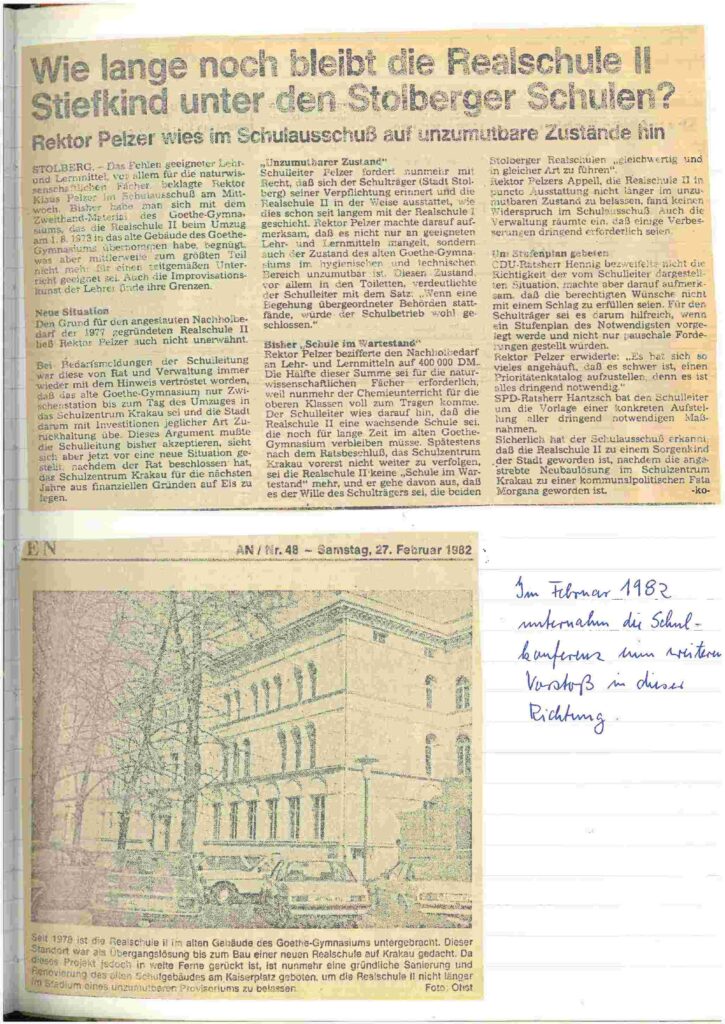 Wie lange noch bleibt die Realschule II
Stiefkind unter den Stolberger Schulen?
Rektor Pelzer wies im Schulausschuß auf unzumutbare Zustände hin
STOLBERG. – Das Fehlen geeigneter Lehr-
und Lernmittel, vor allem für die naturwis-
senschaftlichen Fächer, beklagte Rektor
Klaus Pelzer im Schulausschuß am Mitt-
woch. Bisher habe man sich mit dem
Zweithand-Material des Goethe-Gymna-
siums, das die Realschule II beim Umzug
am 1. 8. 1978 in das alte Gebäude des Goethe-
Gymnasiums übernommen habe, begnügt,
was aber mittlerweile zum größten Teil
nicht mehr für einen zeitgemäßen Unter-
richt geeignet sei. Auch die Improvisations-
kunst der Lehrer finde ihre Grenzen.
Neue Situation
Den Grund für den angestauten Nachholbe-
darf der 1977 gegründeten Realschule II
ließ Rektor Pelzer auch nicht unerwähnt.
Bei Bedarfsmeldungen der Schulleitung
war diese von Rat und Verwaltung immer
wieder mit dem Hinweis vertröstet worden,
daß das alte Goethe-Gymnasium nur Zwi-
schenstation bis zum Tag des Umzuges in
das Schulzentrum Krakau sei und die Stadt
darum mit Investitionen jeglicher Art Zu-
rückhaltung übe. Dieses Argument mußte
die Schulleitung bisher akzeptieren, sieht
sich aber jetzt vor eine neue Situation ge-
stellt, nachdem der Rat beschlossen hat,
das Schulzentrum Krakau für die nächsten
Jahre aus finanziellen Gründen auf Eis zu
legen.
„Unzumutbarer Zustand"
Schulleiter Pelzer fordert nunmehr mit
Recht, daß sich der Schulträger (Stadt Stol-
berg) seiner Verpflichtung erinnert und die
Realschule II in der Weise ausstattet, wie
dies schon seit langem mit der Realschule I
geschieht. Rektor Pelzer machte darauf auf-
merksam, daß es nicht nur an geeigneten
Lehr- und Lernmitteln mangelt, sondern
auch der Zustand des alten Goethe-Gymna-
siums im hygienischen und technischen
Bereich unzumutbar ist. Diesen Zustand,
vor allem in den Toiletten, verdeutlichte
der Schulleiter mit dem Satz: „Wenn eine
Begehung übergeordneter Behörden statt-
fände, würde der Schulbetrieb wohl ge-
schlossen."
Bisher „Schule im Wartestand"
Rektor Pelzer bezifferte den Nachholbedarf
an Lehr- und Lernmitteln auf 400 000 DM.
Die Hälfte dieser Summe sei für die natur-
wissenschaftlichen Fächer erforderlich,
weil nunmehr der Chemieunterricht für die
oberen Klassen voll zum Tragen komme.
Der Schulleiter wies darauf hin, daß die
Realschule II eine wachsende Schule sei,
die noch für lange Zeit im alten Goethe-
Gymnasium verbleibe. Spätestens
nach dem Ratsbeschluß, das Schulzentrum
Krakau vorerst nicht weiter zu verfolgen,
sei die Realschule II keine „Schule im War-
testand" mehr, und er gehe davon aus, daß
es der Wille des Schulträgers sei, die beiden
Stolberger Realschulen „gleichwertig und
in gleicher Art zu führen".
Rektor Pelzers Appell, die Realschule II in
puncto Ausstattung nicht länger im unzu-
mutbaren Zustand zu belassen, fand keinen
Widerspruch im Schulausschuß. Auch die
Verwaltung räumte ein, daß einige Verbes-
serungen dringend erforderlich seien.
Um Stufenplan gebeten
CDU-Ratsherr Hennig bezweifelte nicht die
Richtigkeit der vom Schulleiter dargestell-
ten Situation, machte aber darauf aufmerk-
sam, daß die berechtigten Wünsche nicht
mit einem Schlag zu erfüllen seien. Für den
Schulträger sei es darum hilfreich, wenn
ein Stufenplan des Notwendigsten vorge-
legt werde und nicht nur pauschale Forde-
rungen gestellt würden.
Rektor Pelzer erwiderte: „Es hat sich so
vieles angehäuft, daß es schwer ist, einen
Prioritätenkatalog aufzustellen, denn es ist
alles dringend notwendig."
SPD-Ratsherr Hantzsch bat den Schulleiter
um die Vorlage einer konkreten Aufstel-
lung aller dringend notwendigen Maß-
nahmen.
Sicherlich hat der Schulausschuß erkannt,
daß die Realschule II zu einem Sorgenkind
der Stadt geworden ist, nachdem die ange-
strebte Neubaulösung im Schulzentrum
Krakau zu einer kommunalpolitischen Fata
Morgana geworden ist. -ko-
EN AN / Nr. 48 – Samstag, 27. Februar 1982
Im Februar 1982
unternahm die Schul-
konferenz einen weiteren
Vorstoß in dieser
Richtung.
Seit 1978 ist die Realschule II im alten Gebäude des Goethe-Gymnasiums untergebracht. Dieser
Standort war als Übergangslösung bis zum Bau einer neuen Realschule auf Krakau gedacht. Da
dieses Projekt jedoch in weite Ferne gerückt ist, ist nunmehr eine gründliche Sanierung und
Renovierung des alten Schulgebäudes am Kaiserplatz geboten, um die Realschule II nicht länger
im Stadium eines unzumutbaren Provisoriums zu belassen. Foto: Obst